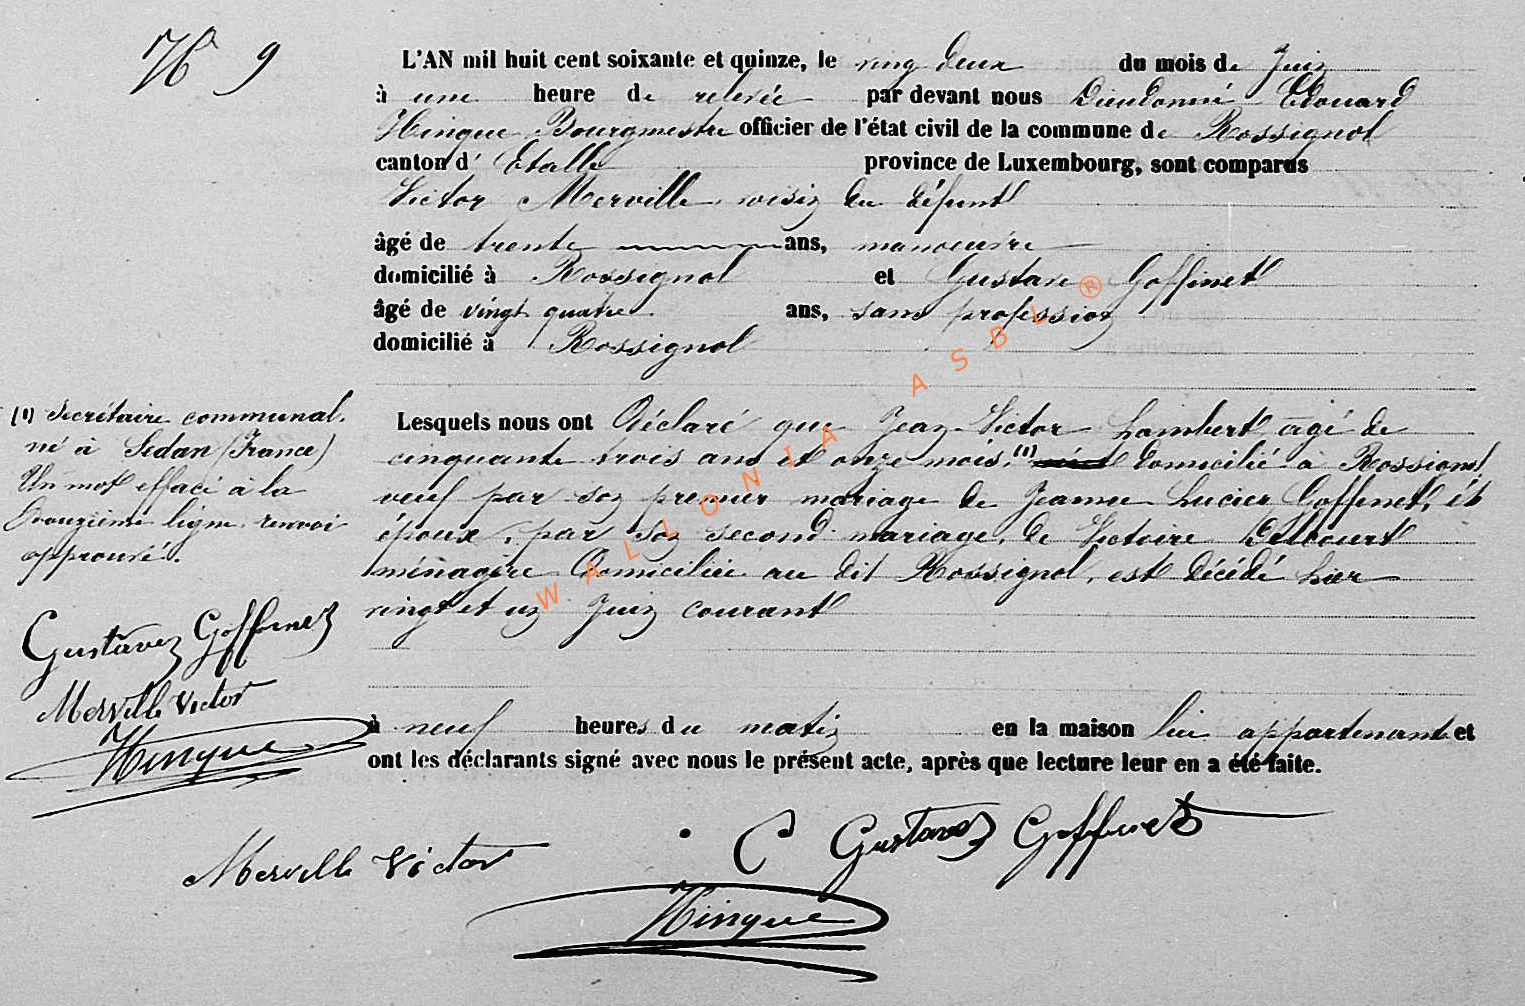 Nº 9
L'AN mil huit cent soixante et quinze, le ving deux du mois de Juin
à une heure de relevée par devant nous Dieudonné Edouard
Hinque Bourgmestre officier de l'état civil de la commune de Rossignol
canton d' Etalle province de Luxembourg, sont comparus
Victor Merville, voisin du défunt
âgé de trente ans, manoeuvre
domicilié à Rossignol et Gustave Goffinet
âgé de vingt quatre ans, sans profession
domicilié à Rossignol
Lesquels nous ont Déclaré que Jean Victor Lambert agé de
cinquante trois ans et onze mois, (1) domicilié à Rossignol,
veuf par son premier mariage de Jeanne Lucier Goffinet, et
époux, par son second mariage, de Victoire Delbourt
ménagère Domiciliée au dit Rossignol, est décédé hier
vingt et un Juin courant
à neuf heures du matin en la maison lui appartenant et
ont les déclarants signé avec nous le présent acte, après que lecture leur en a été faite.
(1) Secrétaire communal.
né à Sedan (France)
Un mot effacé à la
Douzième ligne renvoi
approuvé.
Gustave Goffinet
Merville Victor
Hinque
Merville Victor
G Gustave Goffinet
Hinque
WALLONIA ASBL ®